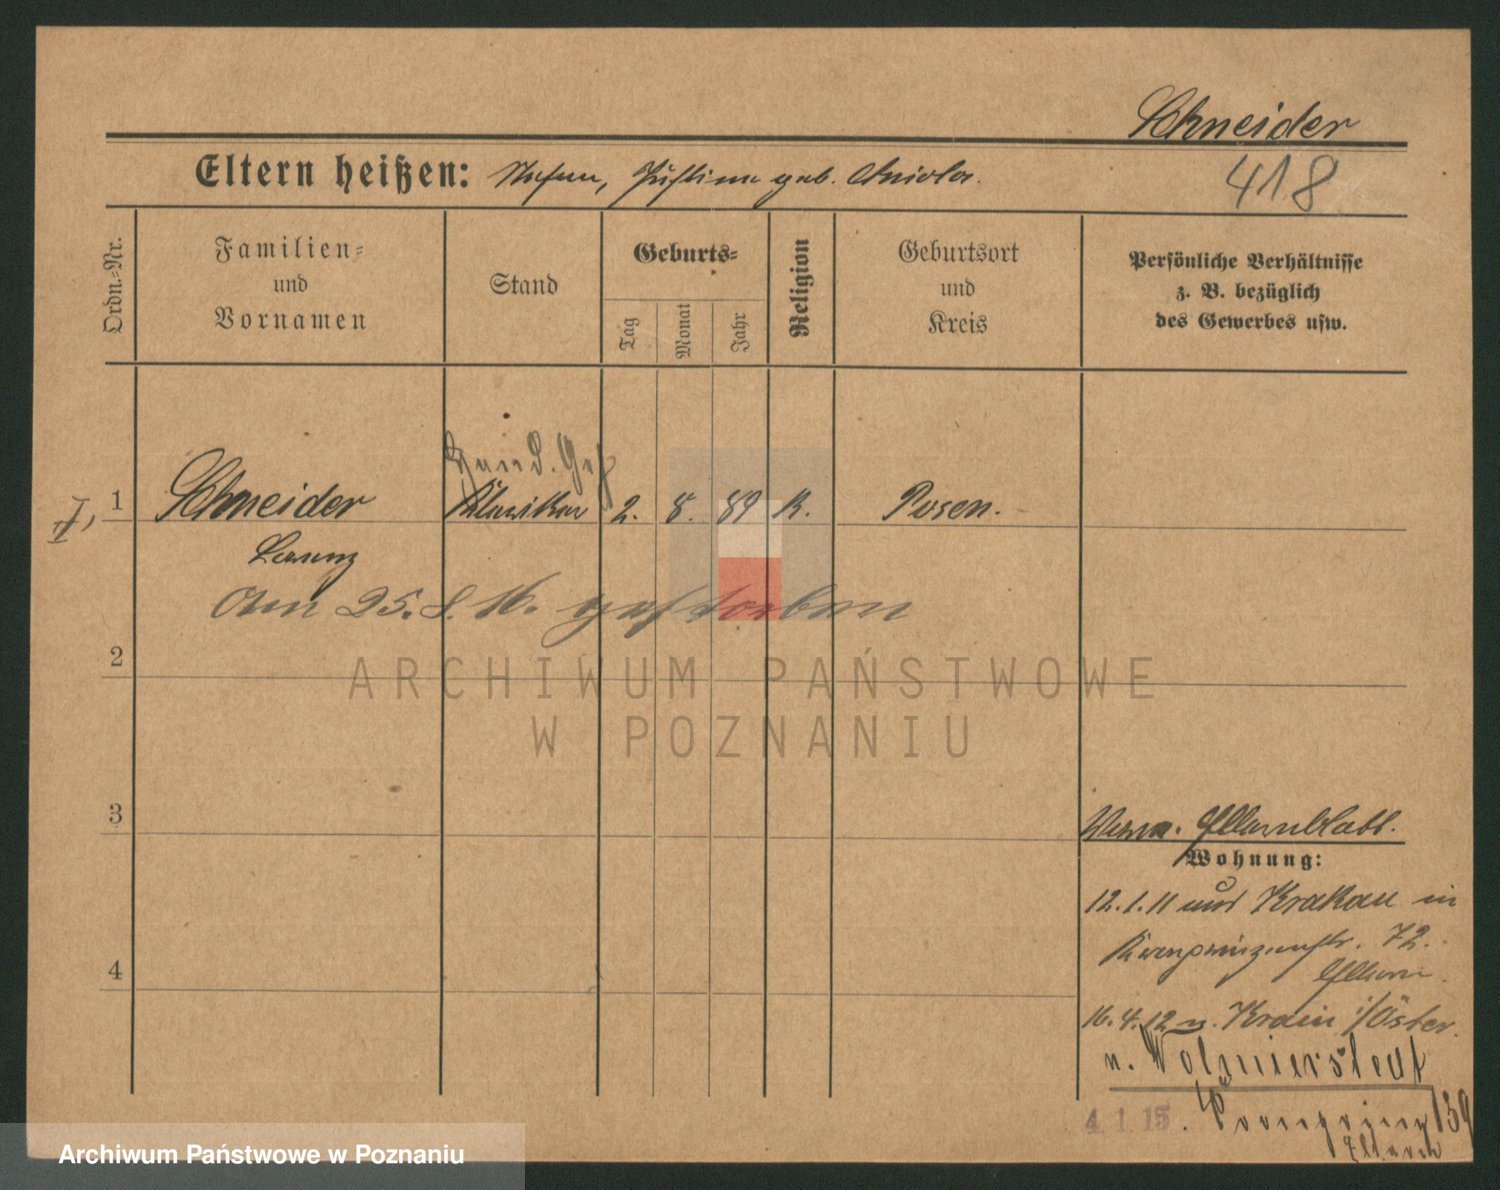 Schneider
Eltern heißen: Stefan, Justina geb. Aniola.
418
Ordn.-Nr.
Familien-
und
Vornamen
Stand
Geburts-
Tag
Monat
Jahr
Religion
Geburtsort
und
Kreis
Persönliche Verhältnisse
z. B. bezüglich
des Gewerbes usw.
1 Schneider 2. 8. 89 K. Posen.
Lorenz
Am 25. 8. 16. gestorben
2
ARCHIWUM PAŃSTWOWE
W POZNANIU
3
Elternblatt.
Wohnung:
12.1.11 und Krakau in
Kronprinzenstr. 72.
Eltern.
4
16.4.12 n. Krain i/Öster.
n. Wolmierstedt
4.1.15. 139
Eltern
Archiwum Państwowe w Poznaniu